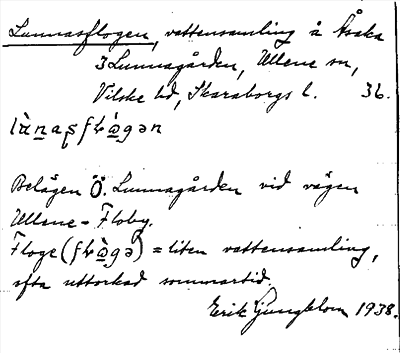 Lunnasflogen, vattensamling å Åsaka
3 Lunnagården, Ullene sn,
Vilske hd, Skaraborgs l. 36.
Belägen Ö. Lunnagården vid vägen
Ullene - Floby.
Floge ( ) = liten vattensamling,
ofta uttorkad sommartid.
Erik Ljungblom 1938.